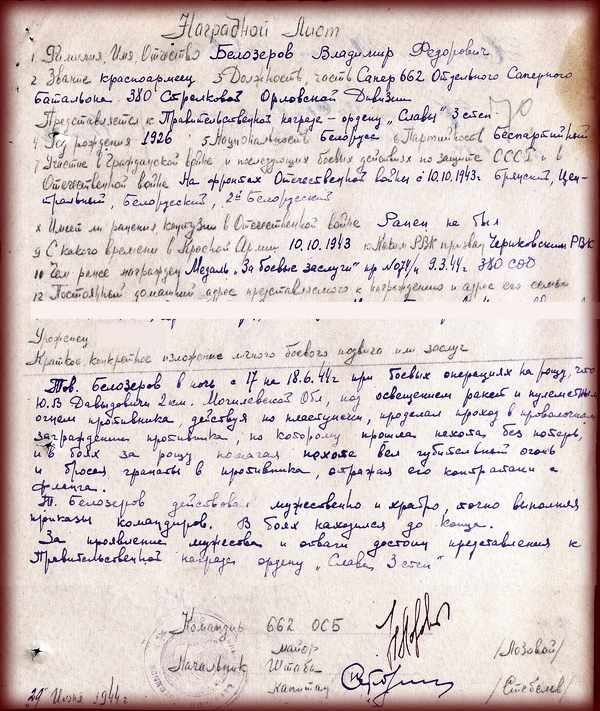 Наградной Лист
1 Фамилия, Имя, Отчество Белозеров Владимир Федорович
2 Звание красноармеец 3 Должность, часть Сапер 662 Отдельного Саперного
батальона 380 Стрелковой Орловской Дивизии
Представляется к Правительственной награде – ордену „Славы" 3 степ
4 Год рождения 1926 5 Национальность Белорус 6 Партийность Беспартийный
7 Участие в Гражданской войне и последующих боевых действиях по защите СССР и в
Отечественной войне На фронтах Отечественной войны с 10.10.1943г Брянский, Цен-
тральный, Белорусский, 2й Белорусский
8 Имеет ли ранения контузии в Отечественной войне Ранен не был
9 С какого времени в Красной Армии 10.10.1943 10 Каким РВК призван Чериковским РВК
10 Чем ранее награжден Медаль „За боевые заслуги" пр №074/н 9.3.44г 380 СОД
12 Постоянный домашний адрес представляемого к награждению и адрес его семьи
Уроженец
Краткое, конкретное изложение личного боевого подвига или заслуг
Тов. Белозеров в ночь с 17 на 18.6.44г при боевых операциях на рощу, что
Ю.В Давыдовичи 2 км. Могилевской Обл, под освещением ракет и пулеметным
огнем противника, действуя по пластунски, проделал проход в проволочном
заграждении противника, по которому прошла пехота без потерь,
и в боях за рощу помогая пехоте вел губительный огонь
и бросая гранаты в противника, отражая его контратаки с
фланга.
Т. Белозеров действовал мужественно и храбро, точно выполняя
приказы командиров. В боях находился до конца.
За проявление мужества и отваги достоин представления к
Правительственной награде ордену „Слава 3 степ"
Командир 662 ОСБ
майор /Лозовой/
Начальник Штаба
капитан /Стебелев/
20 Июня 1944г